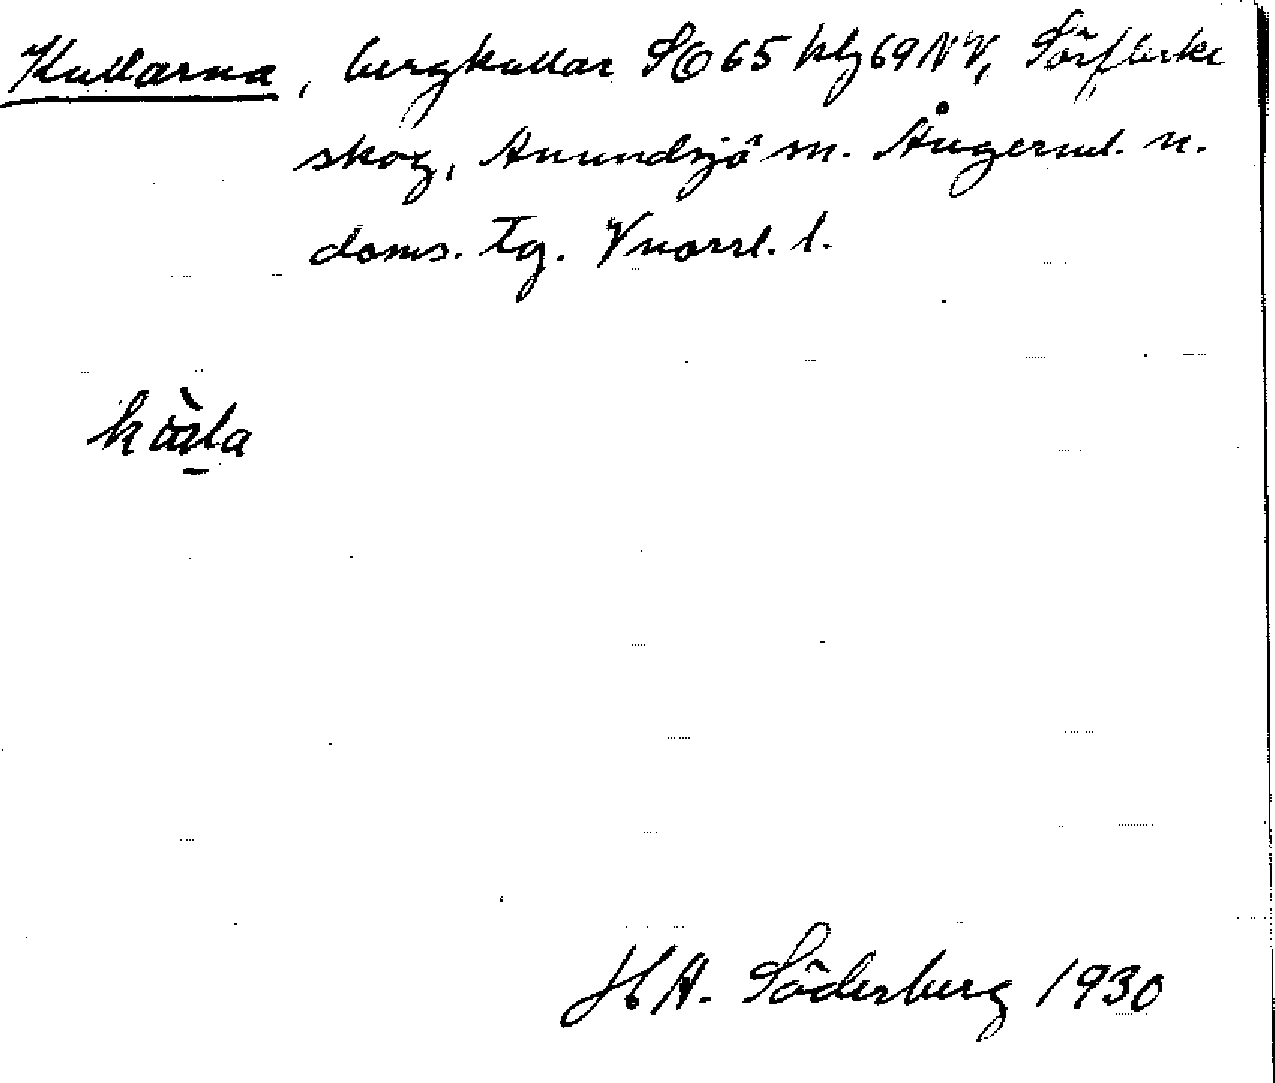 Kullarna, bergkullar SO 65 blj 69 NV, Sörflärke
skog, Anundsjö sn. Ångerml. n.
doms. tg. Vnorrl. l.
kùla
H A. Söderberg 1930